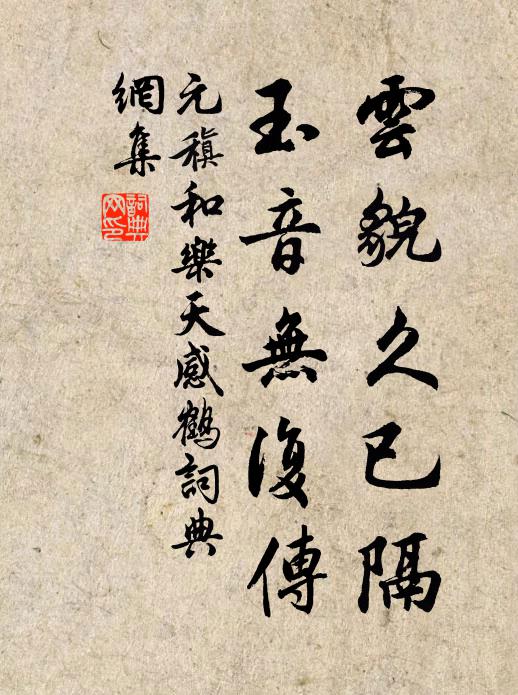 雲貌久已隔
玉音無復傳
元稹和樂天感鶴詞典
網集
詞典
网印